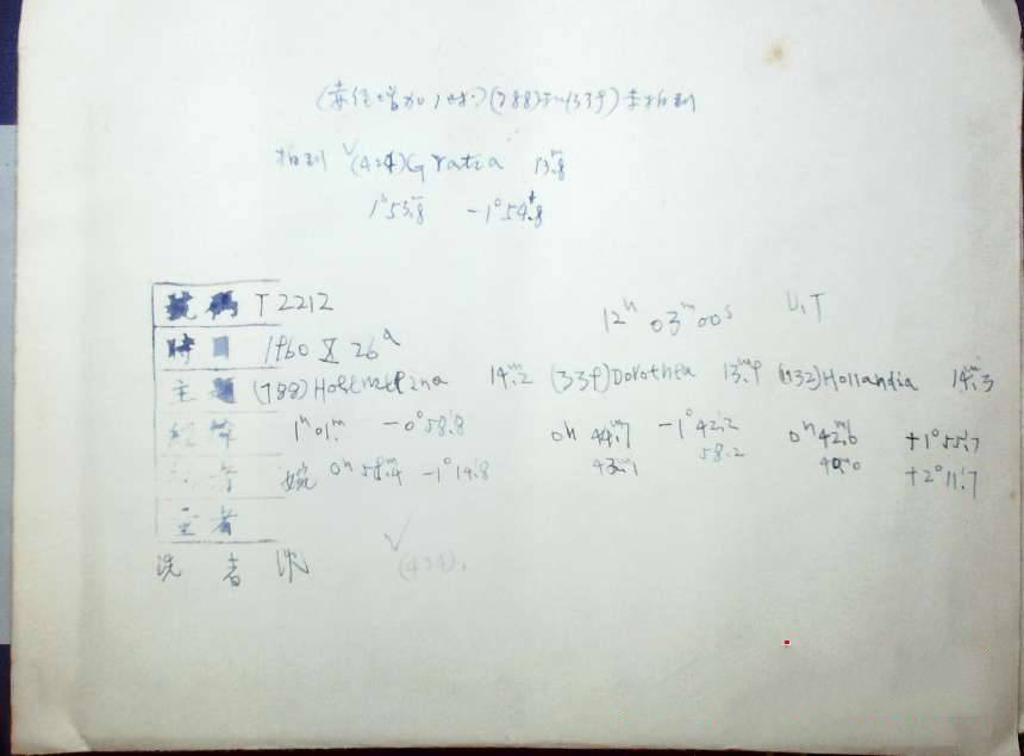 (赤经增加1时?)(788)和(339)未拍到
拍到 √(424)Gratia 13ᵐ.8
1ʰ53ᵐ.8 -1°54′.8
號碼 T2212 12ʰ 03ᵐ 00ˢ U.T
時 1960 X 26ᵈ
主 (788)Hohensteina 14ᵐ.2 (339)Dorothea 13ᵐ.9 (932)Hollandia 14ᵐ.3
1ʰ01ᵐ. -0°58′.8 0ʰ 44ᵐ.7 -1°42′.2 0ʰ42ᵐ.6 +1°55′.7
0ʰ58ᵐ.4 -1°14′.8 43ᵐ.1 58.2 40ᵐ.0 +2°11′.7
者
洗 者
√
(424).